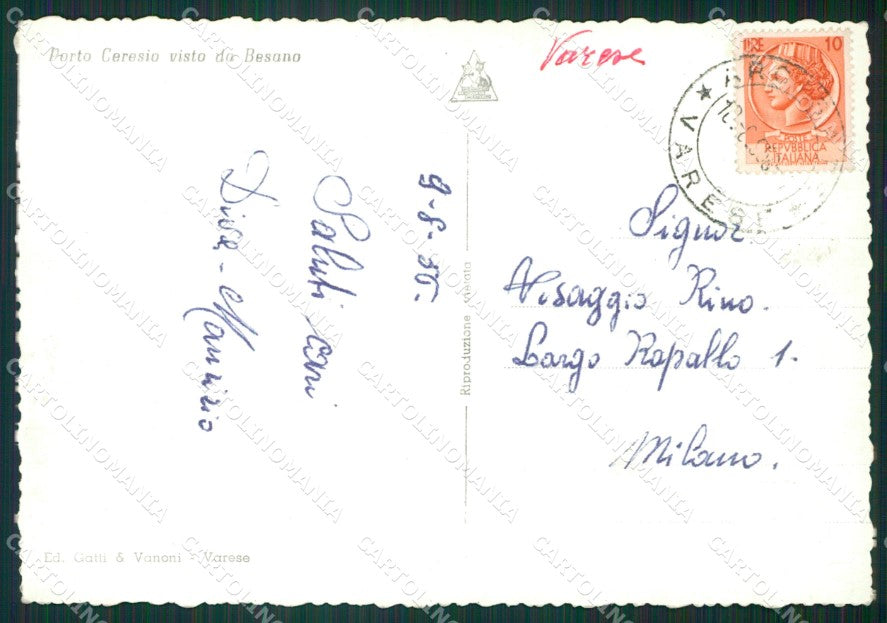 Porto Ceresio visto da Besano
Varese
LIRE 10
POSTE
REPVBBLICA
ITALIANA
VARESE
9-8-56.
Saluti cari
Diva - Maurizio
Riproduzione vietata
Signor
Visaggio Rino.
Largo Rapallo 1.
Milano.
Ed. Gatti & Vanoni - Varese
CARTOLINOMANIA